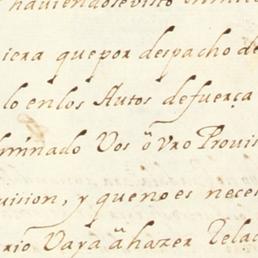 haviendose visto
iera que por despacho de
lo en los Autos de fuerça
minado Vos ô Vro Provis
vision, y que no es neces
rio Vaya â hazer Relac